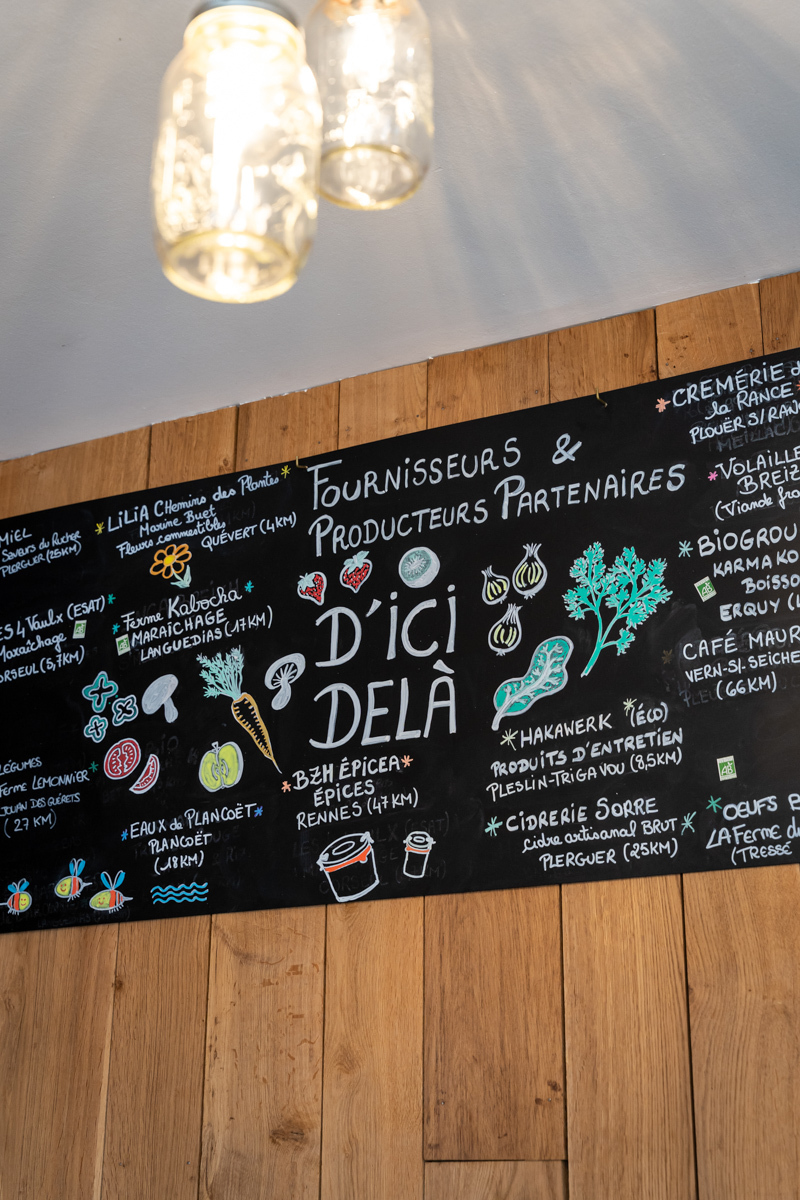 FOURNISSEURS &
PRODUCTEURS PARTENAIRES
D'ICI
DELÀ
MIEL
Saveurs du Rucher
PLERGUER (25KM)
ES 4 Vaulx (ESAT)
Maraîchage
ORSEUL (5,7KM)
LÉGUMES
FERME LEMONNIER
(27 KM)
LILIA CHemins des Plantes
Marine Buet
Fleurs commestibles
QUÉVERT (4KM)
Ferme Kabocha
MARAÎCHAGE
LANGUEDIAS (17KM)
EAUX de PLANCOËT
PLANCOËT
(18KM)
BZH ÉPICEA
ÉPICES
RENNES (47KM)
HAKAWERK (ÉCO)
PRODUITS D'ENTRETIEN
PLESLIN-TRIGAVOU (8,5KM)
CIDRERIE SORRE
cidre artisanal BRUT
PLERGUER (25KM)
CREMÉRIE d
la RANCE
PLOUËR S/RANC
VOLAILLE
BREIZ
(Viande fra
BIOGROU
KARMA KO
BOISSO
ERQUY (
CAFÉ MAUR
VERN-S/-SEICHE
(66KM)
AB
OEUFS B
LA FERME du
(TRESSÉ